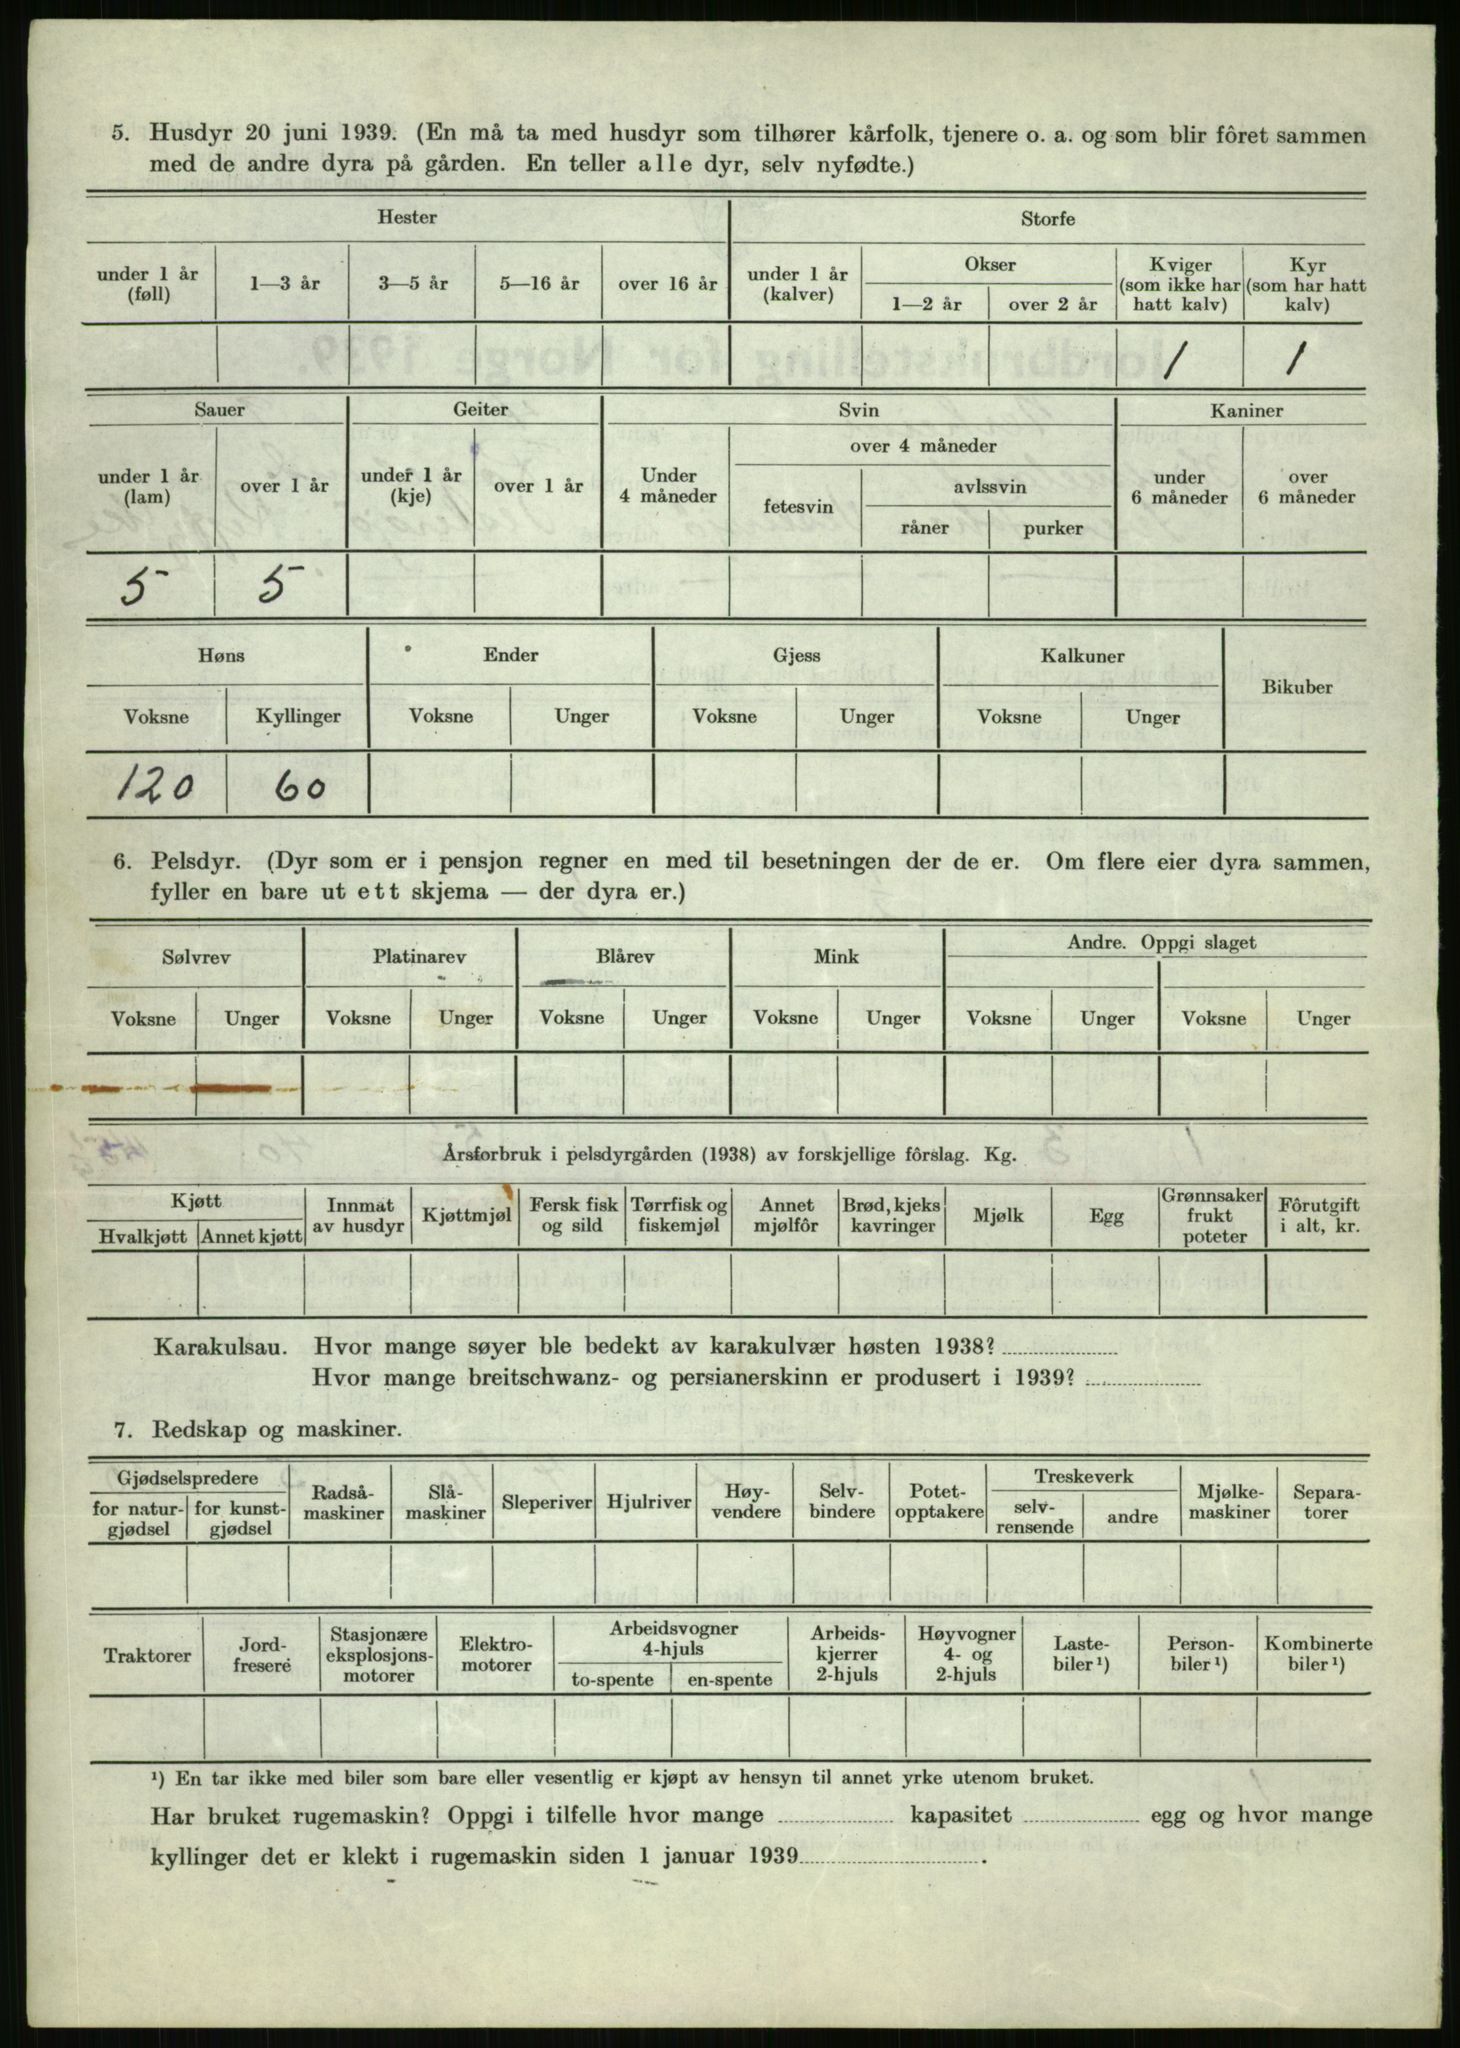 5. Husdyr 20 juni 1939. (En må ta med husdyr som tilhører kårfolk, tjenere o. a. og som blir fôret sammen
med de andre dyra på gården. En teller alle dyr, selv nyfødte.)
Hester Storfe
under 1 år (føll) 1—3 år 3—5 år 5—16 år over 16 år under 1 år (kalver) Okser 1—2 år over 2 år Kviger (som ikke har hatt kalv) Kyr (som har hatt kalv)
1 1
Sauer Geiter Svin Kaniner
under 1 år (lam) over 1 år under 1 år (kje) over 1 år Under 4 måneder over 4 måneder fetesvin avlssvin råner purker under 6 måneder over 6 måneder
5 5
Høns Ender Gjess Kalkuner Bikuber
Voksne Kyllinger Voksne Unger Voksne Unger Voksne Unger
120 60
6. Pelsdyr. (Dyr som er i pensjon regner en med til besetningen der de er. Om flere eier dyra sammen,
fyller en bare ut ett skjema — der dyra er.)
Sølvrev Platinarev Blårev Mink Andre. Oppgi slaget
Voksne Unger Voksne Unger Voksne Unger Voksne Unger Voksne Unger Voksne Unger
Årsforbruk i pelsdyrgården (1938) av forskjellige fôrslag. Kg.
Kjøtt Hvalkjøtt Annet kjøtt Innmat av husdyr Kjøttmjøl Fersk fisk og sild Tørrfisk og fiskemjøl Annet mjølfôr Brød, kjeks kavringer Mjølk Egg Grønnsaker frukt poteter Fôrutgift i alt, kr.
Karakulsau. Hvor mange søyer ble bedekt av karakulvær høsten 1938?
Hvor mange breitschwanz- og persianerskinn er produsert i 1939?
7. Redskap og maskiner.
Gjødselspredere for natur- gjødsel for kunst- gjødsel Radså- maskiner Slå- maskiner Sleperiver Hjulriver Høy- vendere Selv- bindere Potet- opptakere Treskeverk selv- rensende andre Mjølke- maskiner Separa- torer
Traktorer Jord- fresere Stasjonære eksplosjons- motorer Elektro- motorer Arbeidsvogner 4-hjuls to-spente en-spente Arbeids- kjerrer 2-hjuls Høyvogner 4- og 2-hjuls Laste- biler ¹) Person- biler ¹) Kombinerte biler ¹)
¹) En tar ikke med biler som bare eller vesentlig er kjøpt av hensyn til annet yrke utenom bruket.
Har bruket rugemaskin? Oppgi i tilfelle hvor mange kapasitet egg og hvor mange
kyllinger det er klekt i rugemaskin siden 1 januar 1939.